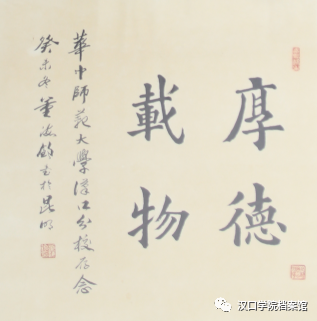 厚德
載物
華中師范大學漢口分校存念
癸未冬董海
於昆明
汉口学院档案馆